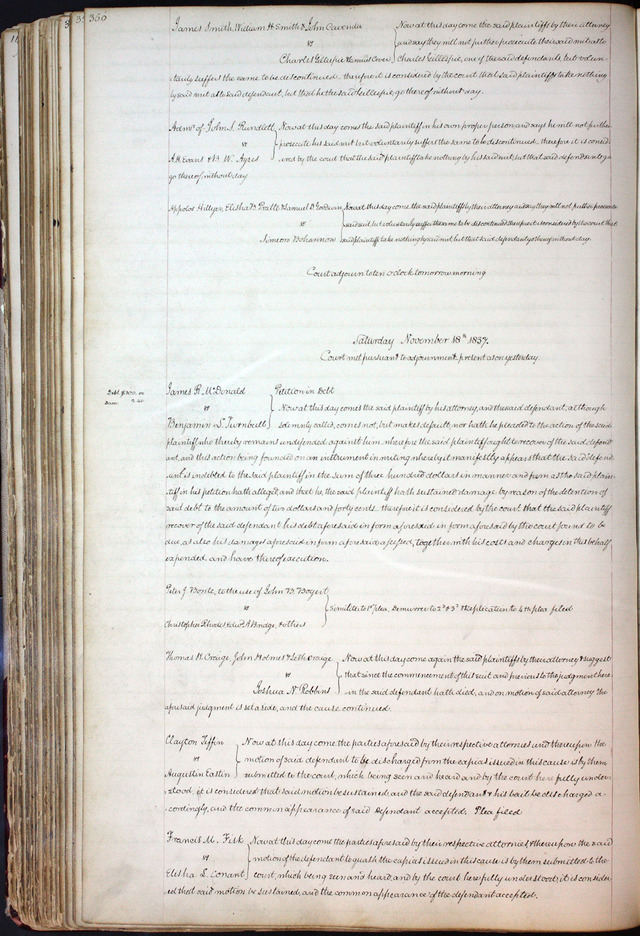 350
James Smith, William H. Smith & John Cavender
vs
Charles Gillespie & Ennis Coon
Now at this day come the said plaintiffs by their attorney
and say they will not further prosecute their said suit as to
Charles Gillespie, one of the said defendants but volun-
tarily suffers the same to be discontinued. therefore it is considered by the court that said plaintiffs take nothing
by said suit as to said defendant, but that he the said Gillespie, go thereof without day.
Admr of John S. Rundlett
vs
A. H. Evans & B. W. Ayres
Now at this day comes the said plaintiff in his own proper person and says he will not further
prosecute his said suit but voluntarily suffers the same to be discontinued. therefore it is consid-
ered by the court that the said plaintiff take nothing by his said suit, but that said defendants
go thereof without day
Appolos Hillyer, Elisha Pratt & Samuel D. Goodwin
vs
Simeon Bohannon
Now at this day come the said plaintiffs by their attorney and say they will not further prosecute
said suit but voluntarily suffer the same to be discontinued therefore it is considered by the court that
said plaintiffs take nothing by said suit, but that said defendant go thereof without day.
Court adjourn to ten o'clock tomorrow morning
Saturday November 18th 1837.
Court met pursuant to adjournment present as on yesterday.
Debt $300.00
Dam 2.40
James R. McDonald
vs
Benjamin S. Turnbull
Petition in Debt
Now at this day comes the said plaintiff by his attorney, and the said defendant, although
solemnly called, comes not, but makes default, nor hath he pleaded to the action of the said
plaintiff who thereby remains undefended against him, wherefore the said plaintiff ought to recover of the said defend
ant, and this action being founded on an instrument in writing whereby it manifestly appears that the said defend
ant is indebted to the said plaintiff in the sum of three hundred dollars in manner and form as the said plain-
tiff in his petition hath alleged, and that he, the said plaintiff hath sustained damage by reason of the detention of
said debt to the amount of two dollars and forty cents. therefore it is considered by the court that the said plaintiff
recover of the said defendant his debt aforesaid in form aforesaid in form aforesaid by the court found to be
due, as also his damages aforesaid in form aforesaid assessed, together with his costs and charges in this behalf
expended, and have thereof execution.
Peter J. Bonte, to the use of John B. Bogert
vs
Christopher Rhodes Edwd A. Bridge, & others
Similiter to 1st plea, Demurrer to 2d & 3d & Replication to 4th plea filed
Thomas H. Creige, John Holmes & Seth Craige
vs
Joshua N. Robbins
Now at this day come again the said plaintiffs by their attorney & suggest
that since the commencement of this suit and previous to the judgment here-
in the said defendant hath died, and on motion of said attorney the
aforesaid judgment is set aside, and the cause continued.
Clayton Tiffin
vs
Augustin Eastin
Now at this day come the parties aforesaid by their respective attornies and thereupon the
motion of said defendant to be discharged from the capias issued in this cause is by them
submitted to the court, which being seen and heard and by the court here fully under
stood, it is considered that said motion be sustained, and the said defendant & his bail be discharged a-
ccordingly, and the common appearance of said Defendant accepted. Plea filed
Francis M. Fisk
vs
Elisha S. Conant
Now at this day come the parties aforesaid by their respective attornies, & thereupon the said
motion of the defendant to quash the capias issued in this cause is by them submitted to the
court, which being seen and heard, and by the court here fully understood, it is consider-
ed that said motion be sustained, and the common appearance of the defendant accepted.